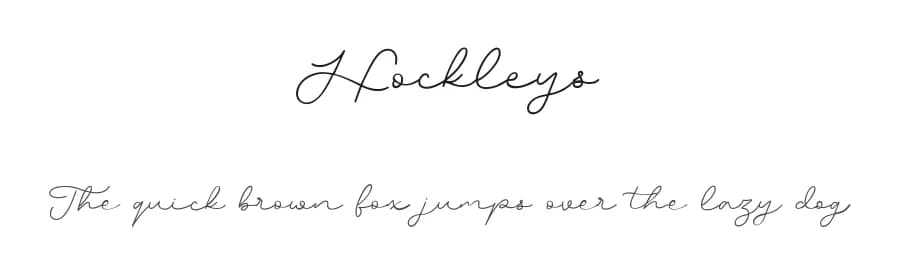 Hockleys
The quick brown fox jumps over the lazy dog